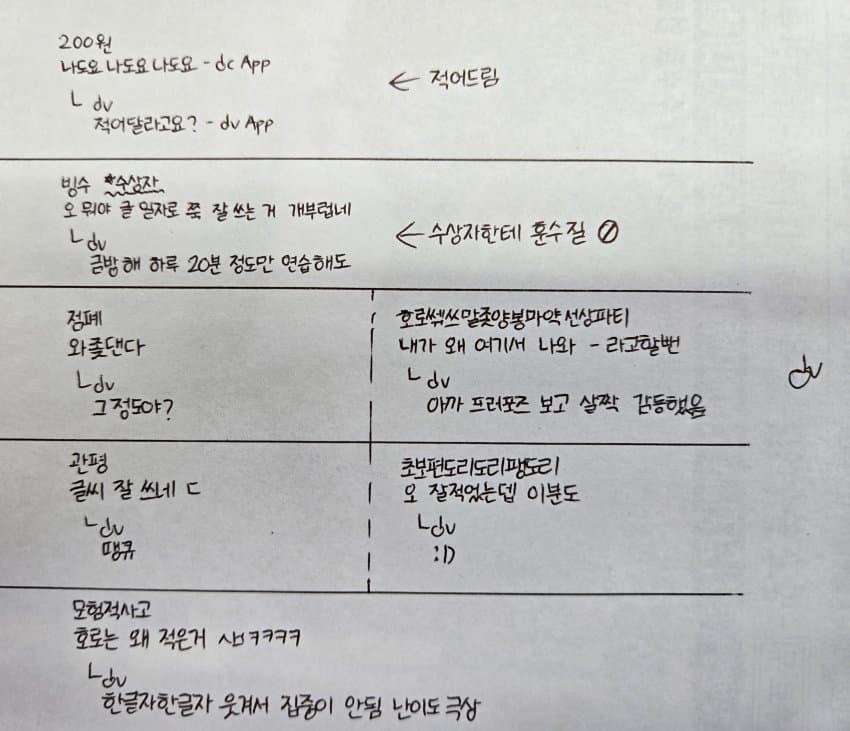 200원
나도요 나도요 나도요 - dc App
ㄴ dv
적어달라고요? - dv App
← 적어드림
빙수 *수상자
오 뭐야 글 일자로 쭉 잘 쓰는 거 개부럽네
ㄴ dv
금방해 하루 20분 정도만 연습해도
← 수상자한테 훈수질
점폐
와좆댄다
ㄴ dv
그정도야?
호로쉒쓰말좆양봉마약선상파티
내가 왜 여기서 나와 - 라고할뻔
ㄴ dv
아까 프러포즈 보고 살짝 감동했음
dv
관평
글씨 잘 쓰네 ㄷ
ㄴ dv
땡큐
초보편도리도리팽도리
오 잘적었는뎁 이분도
ㄴ dv
:D
모험적사고
호로는 왜 적은거 ㅅㅂㅋㅋㅋㅋ
ㄴ dv
한글자한글자 웃겨서 집중이 안됨 난이도극상